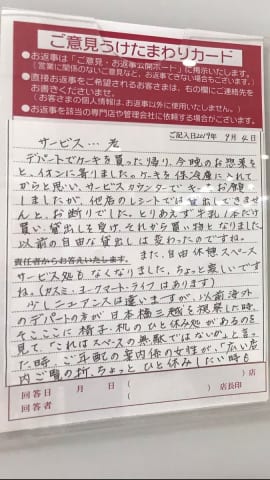 ご意見うけたまわりカード
●お返事は「ご意見・お返事公開ボード」に掲示いたします。
(営業に関係のないご意見など、お返事できない場合もございます。)
●直接お返事をご希望されるお客さまは、右の欄にご連絡先を
お書きくださいませ。
(お客さまの個人情報は、お返事以外に使用いたしません。)
●お返事を該当の専門店や管理会社に依頼する場合がございます。
ご記入日2019年 9月 4日
サービス… 差
デパートでケーキを買った帰り、今晩のお惣菜を
と、イオンに寄りました。ケーキを保冷庫に入れて
からと思い、サービスカウンターで
しましたが、他店のレシートでは貸出しできませ
んと、お断りでした。とりあえず牛乳1本だけ
買い、貸出しを受け、それから買い物となりました。
以前の自由な貸出しは変わったのですね。
責任者からお答えいたします。
また、自由休憩スペース
サービス処もなくなりました、ちょっと寂しいです
ね。(カスミ・ヨークマート・ライフはあります)
少しニュアンスは違いますが、以前海外
のデパートの方が日本橋三越を視察した時、
そこここに椅子・机のひと休み処があるのを
見て、「これはスペースの無駄ではないか」と言っ
た時、ご年配の案内係の女性が、「広い店
内ご覧の折、ちょっとひと休みしたい時も
回答日 月 日 ( )店
回答者 ( )店長印